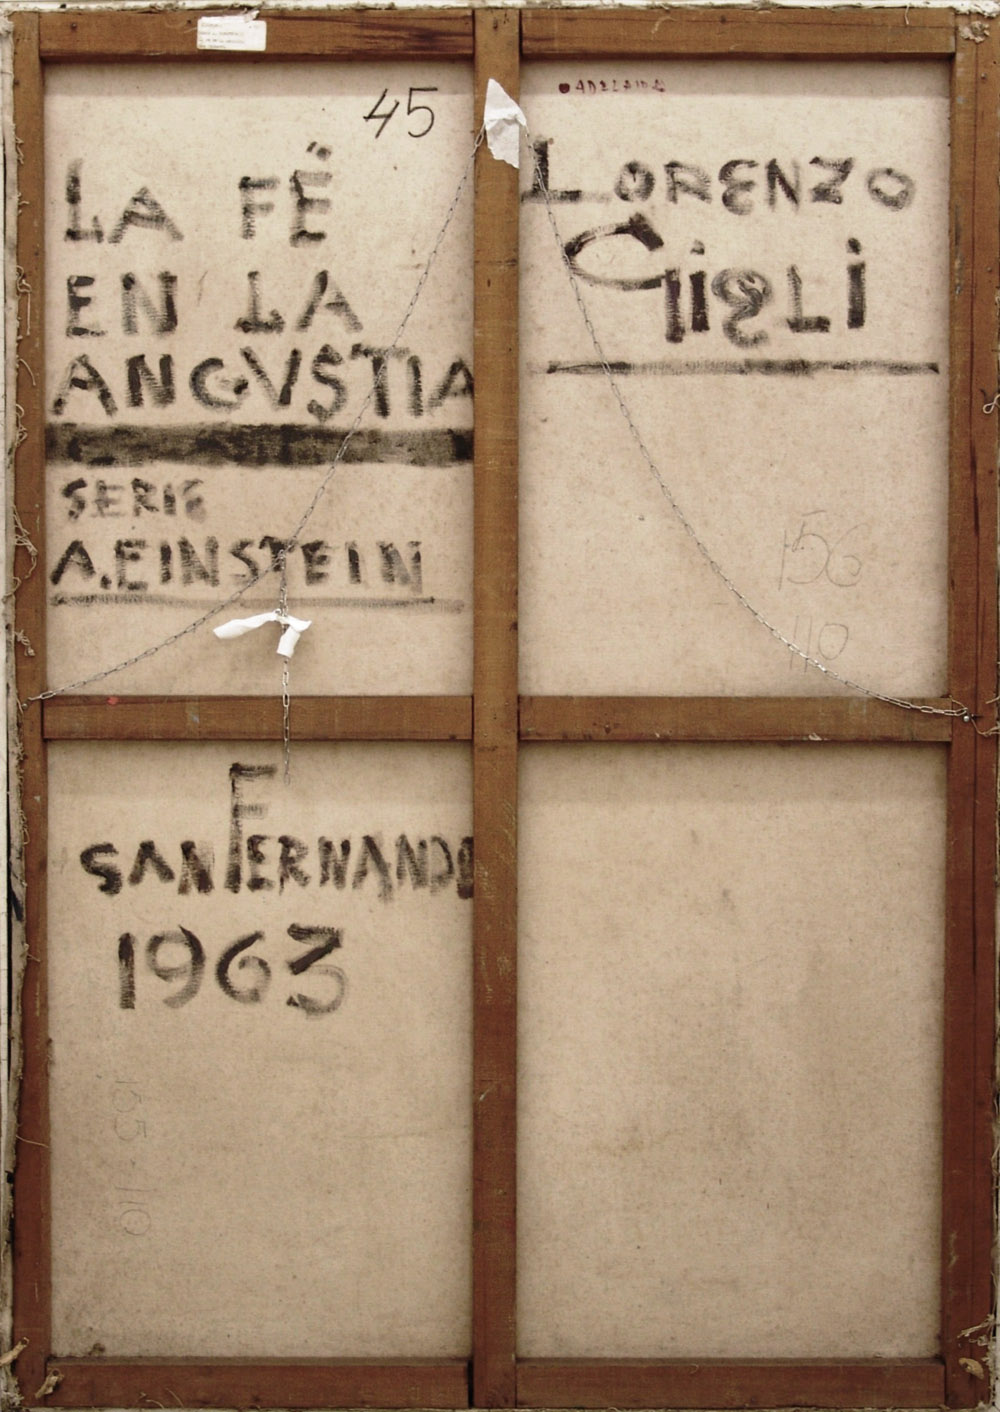 45
LA FË
EN LA
ANGVSTIA
SERIE
A. EINSTEIN
ADELAIDA
LORENZO
GIGLI
156
110
F
SAN FERNANDO
1963
155 110